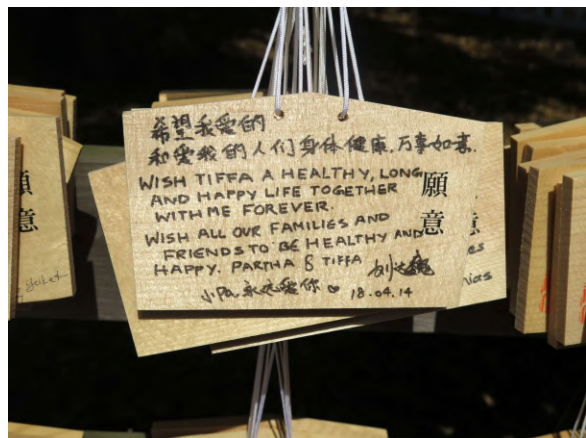 希望我爱的
和爱我的人们身体健康,万事如意.
WISH TIFFA A HEALTHY, LONG
AND HAPPY LIFE TOGETHER
WITH ME FOREVER.
WISH ALL OUR FAMILIES AND
FRIENDS TO BE HEALTHY AND
HAPPY. PARTHA & TIFFA
小Pa永远爱你♡ 18.04.14
願意
意
願意